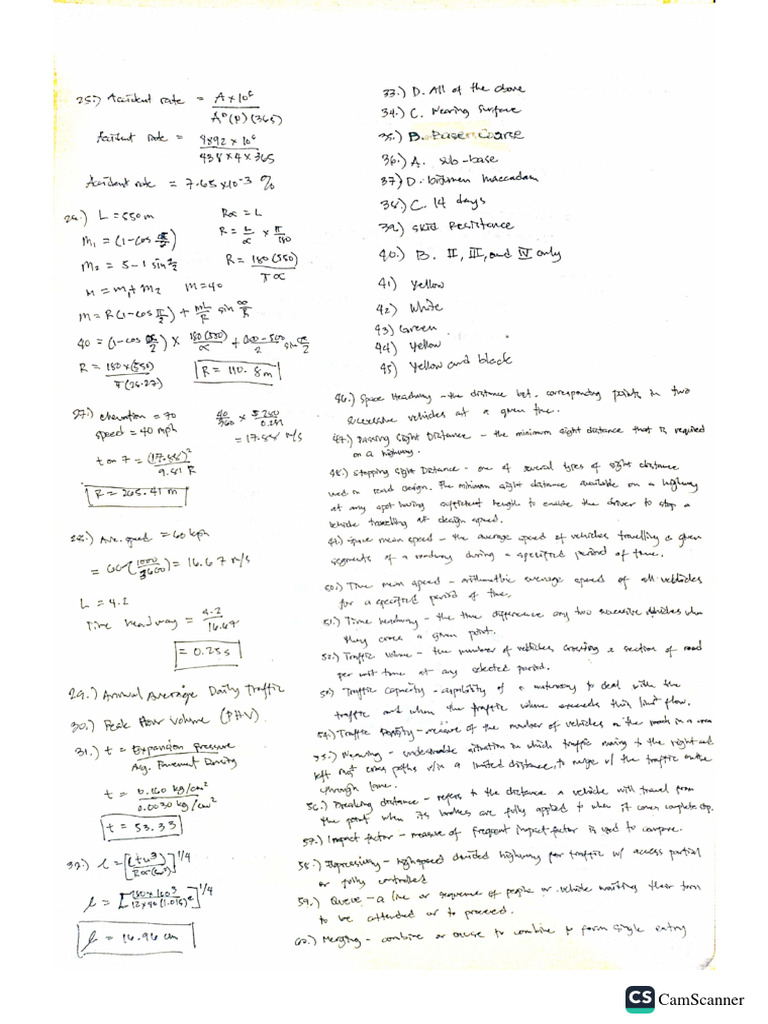 25.) Accident rate = A x 10⁶ / A°(P)(365)
Accident rate = 9892 x 10⁶ / 438 x 4 x 365
Accident rate = 7.65 x 10⁻³ %
26.) L = 550 m Rα = L
m₁ = (1-cos α/2) R = L/α x π/180
m₂ = 5-1 sin α/2 R = 180(550) / πα
M = m₁ + m₂ M = 40
R = 180 x (550) / π(26.27) R = 110.8 m
27.) elevation = 70
speed = 40 mph
= 17.88 m/s
tan 7 = (17.88)² / 9.81 R
R = 265.41 m
28.) Ave. speed = 60 kph
= 60 (1000/3600) = 16.67 m/s
L = 4.2
Time headway = 4.2 / 16.67
= 0.25 s
29.) Annual Average Daily Traffic
30.) Peak Hour Volume (PHV)
31.) t = Expansion Pressure / Avg. Pavement Density
t = 0.160 kg/cm² / 0.0030 kg/cm²
t = 53.33
32.) l = [Et³ / ]^1/4
l = 16.96 cm
33.) D. All of the above
34.) C. Wearing Surface
35.) B. Base Coarse
36.) A. sub-base
37.) D. bitumen maccadam
38.) C. 14 days
39.) Skid Resistance
40.) B. II, III, and IV only
41) Yellow
42) White
43) Green
44) Yellow
45) Yellow and black
46.) Space Headway - the distance bet. corresponding points in two
successive vehicles at a given time.
47.) Passing Sight Distance - the minimum sight distance that is required
on a highway.
48.) Stopping Sight Distance - one of several types of sight distance
used in road design. The minimum sight distance available on a highway
at any spot having sufficient length to enable the driver to stop a
vehicle travelling at design speed.
49.) Space mean speed - the average speed of vehicles travelling a given
segments of a roadway during a specified period of time.
50.) Time mean speed - arithmetic average speed of all vehicles
for a specified period of time.
51.) Time headway - the time difference any two successive vehicles when
they cross a given point.
52.) Traffic volume - the number of vehicles crossing a section of road
per unit time at any selected period.
53.) Traffic Capacity - capability of a motorway to deal with the
traffic and when the traffic volume exceeds this limit flow.
54.) Traffic Density - measure of the number of vehicles on the roads in a area
55.) Weaving - undesirable situation in which traffic moving to the right and
left must cross paths w/in a limited distance, to merge w/ the traffic on the
through lane.
56.) Breaking distance - refers to the distance a vehicle will travel from
the point when its brakes are fully applied to when it comes complete stop.
57.) Impact factor - measure of frequent impact factor is used to compare.
58.) Expressway - highspeed divided highway for traffic w/ access partial
or fully controlled
59.) Queue - a line or sequence of people or vehicle waiting their turn
to be attended or to proceed.
60.) Merging - combine or cause to combine to form single entity
CS CamScanner